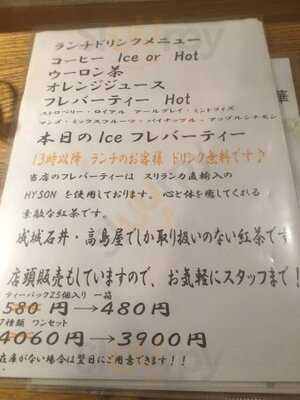 ランチドリンクメニュー
コーヒー Ice or Hot
ウーロン茶
オレンジジュース
フレバーティー Hot
ストロベリー・ロイアル アールグレイ・ミントライズ
マンゴ・ミックスフルーツ・パイナップル・アップルシナモン
本日の Ice フレバーティー
13時以降 ランチのお客様 ドリンク無料です♪
当店のフレバーティーは スリランカ直輸入の
HYSON を使用しております。心と体を癒してくれる
素敵な紅茶です。
成城石井・高島屋でしか取り扱いのない紅茶です
店頭販売もしていますので、お気軽にスタッフまで!
ティーパック25個入り 一箱
580 円→480円
7種類 ワンセット
4060円→3900円
在庫がない場合は翌日にご用意できます!!